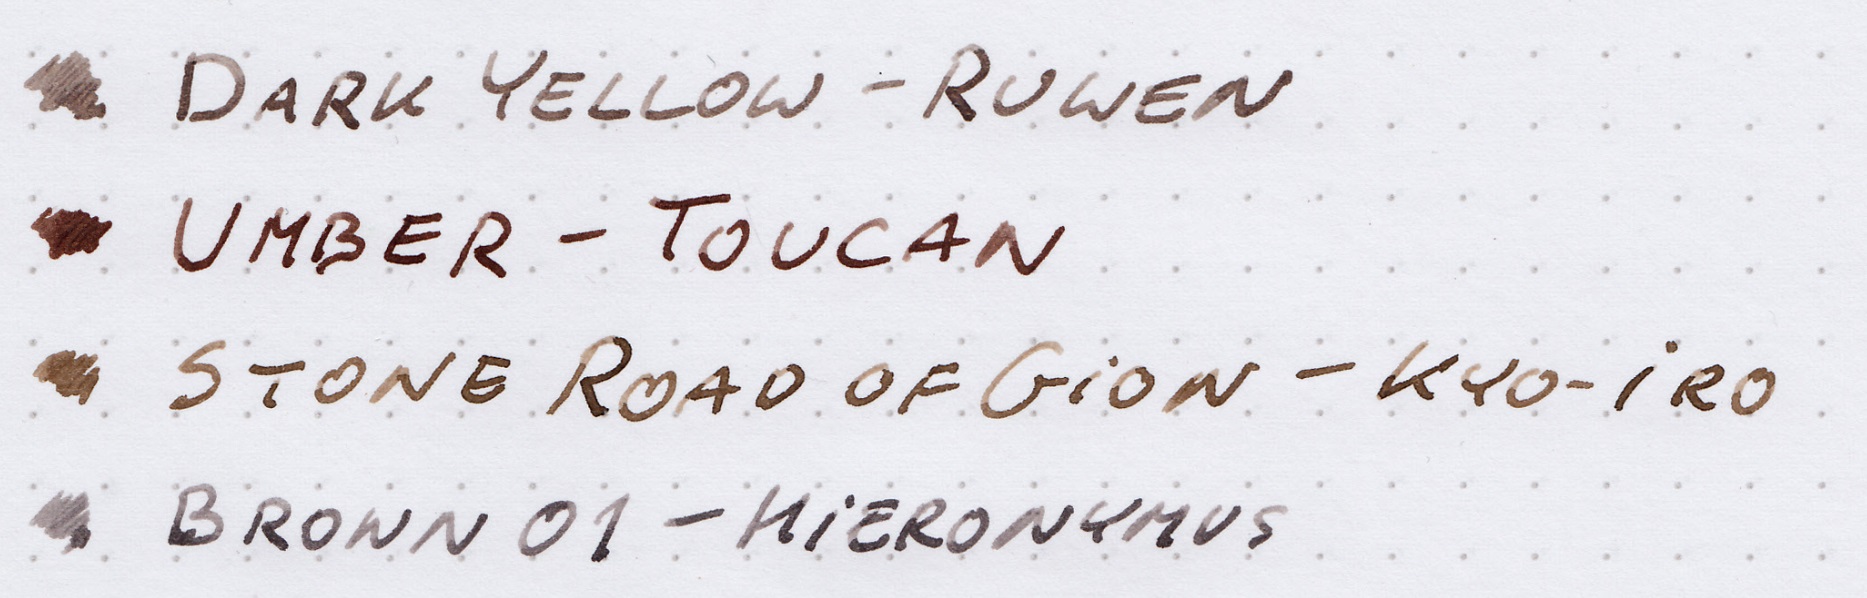 DARK YELLOW - RUWEN
UMBER - TOUCAN
STONE ROAD OF GiON - KYO-iRO
BROWN 01 - HiERONYMUS